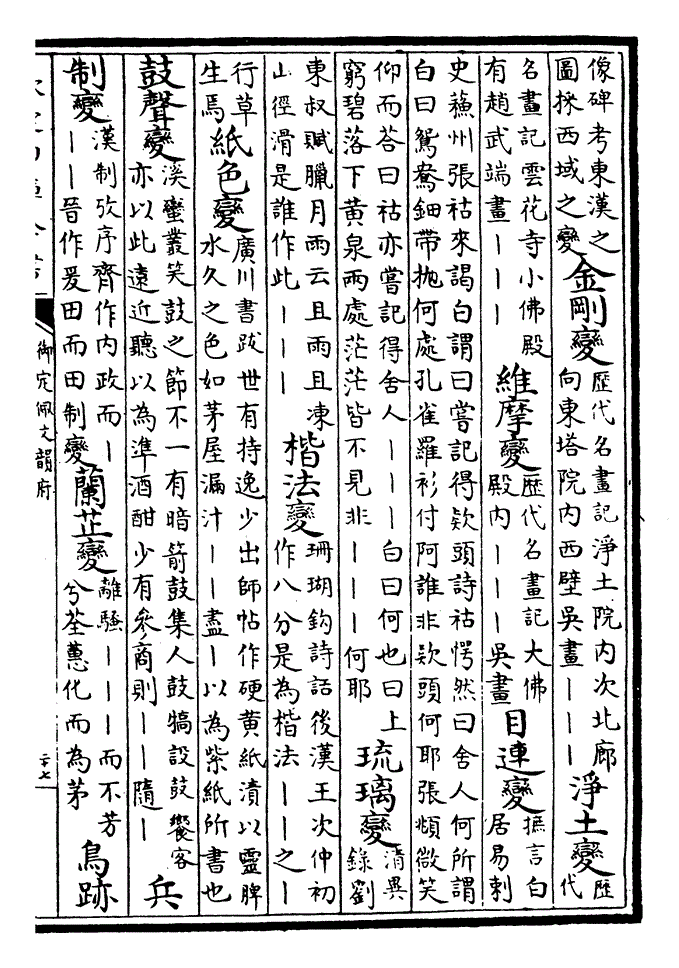 像碑考東漢之
圖採西域之變
金剛變
歷代名畫記淨土院内次北廊
向東塔院内西壁吳畫｜｜｜
淨土變
歷
代
名畫記雲花寺小佛殿
有趙武端畫｜｜｜
維摩變
歷代名畫記大佛
殿内｜｜｜吳畫
目連變
摭言白
居易刺
史蘓州張祜來謁白謂曰嘗記得欵頭詩祜愕然曰舍人何所謂
白曰鴛鴦鈿帶抛何處孔雀羅衫付阿誰非欵頭何耶張頫微笑
仰而荅曰祜亦嘗記得舍人｜｜｜白曰何也曰上
窮碧落下黄泉兩處茫茫皆不見非｜｜｜何耶
琉璃變
清異
錄劉
東叔賦臘月雨云且雨且凍
山徑滑是誰作此｜｜｜
楷法變
珊瑚鈎詩話後漢王次仲初
作八分是為楷法｜｜之｜
行草
生焉
紙色變
廣川書跋世有持逸少出師帖作硬黄紙漬以靈脾
水久之色如茅屋漏汁｜｜盡｜以為紫紙所書也
鼓聲變
溪蠻叢笑鼓之節不一有暗箭鼓集人鼓犒設鼓饗客
亦以此遠近聽以為準酒酣少有叅商則｜｜隨｜
兵
制變
漢制攷序齊作内政而｜
｜｜晉作爰田而田制變
蘭芷變
離騷｜｜｜而不芳
兮荃蕙化而為茅
鳥跡
御定佩文韻府
二十七